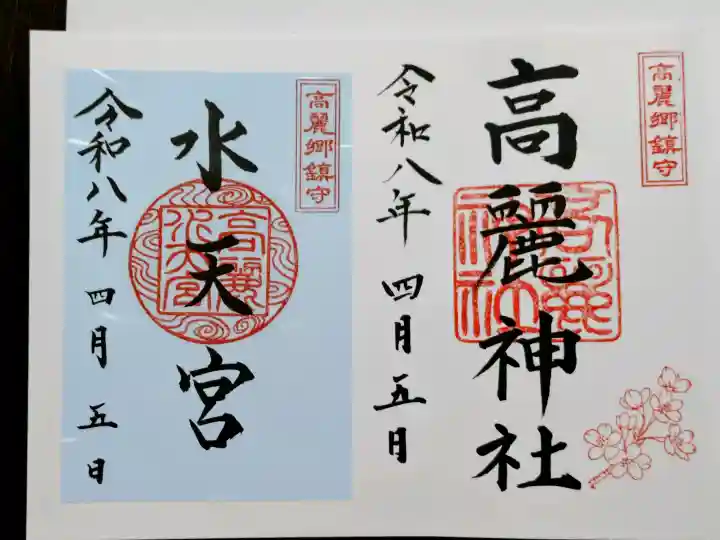 高麗郷鎮守
高麗神社
令和八年四月五日
高麗郷鎮守
水天宮
令和八年四月五日
高麗水天宮